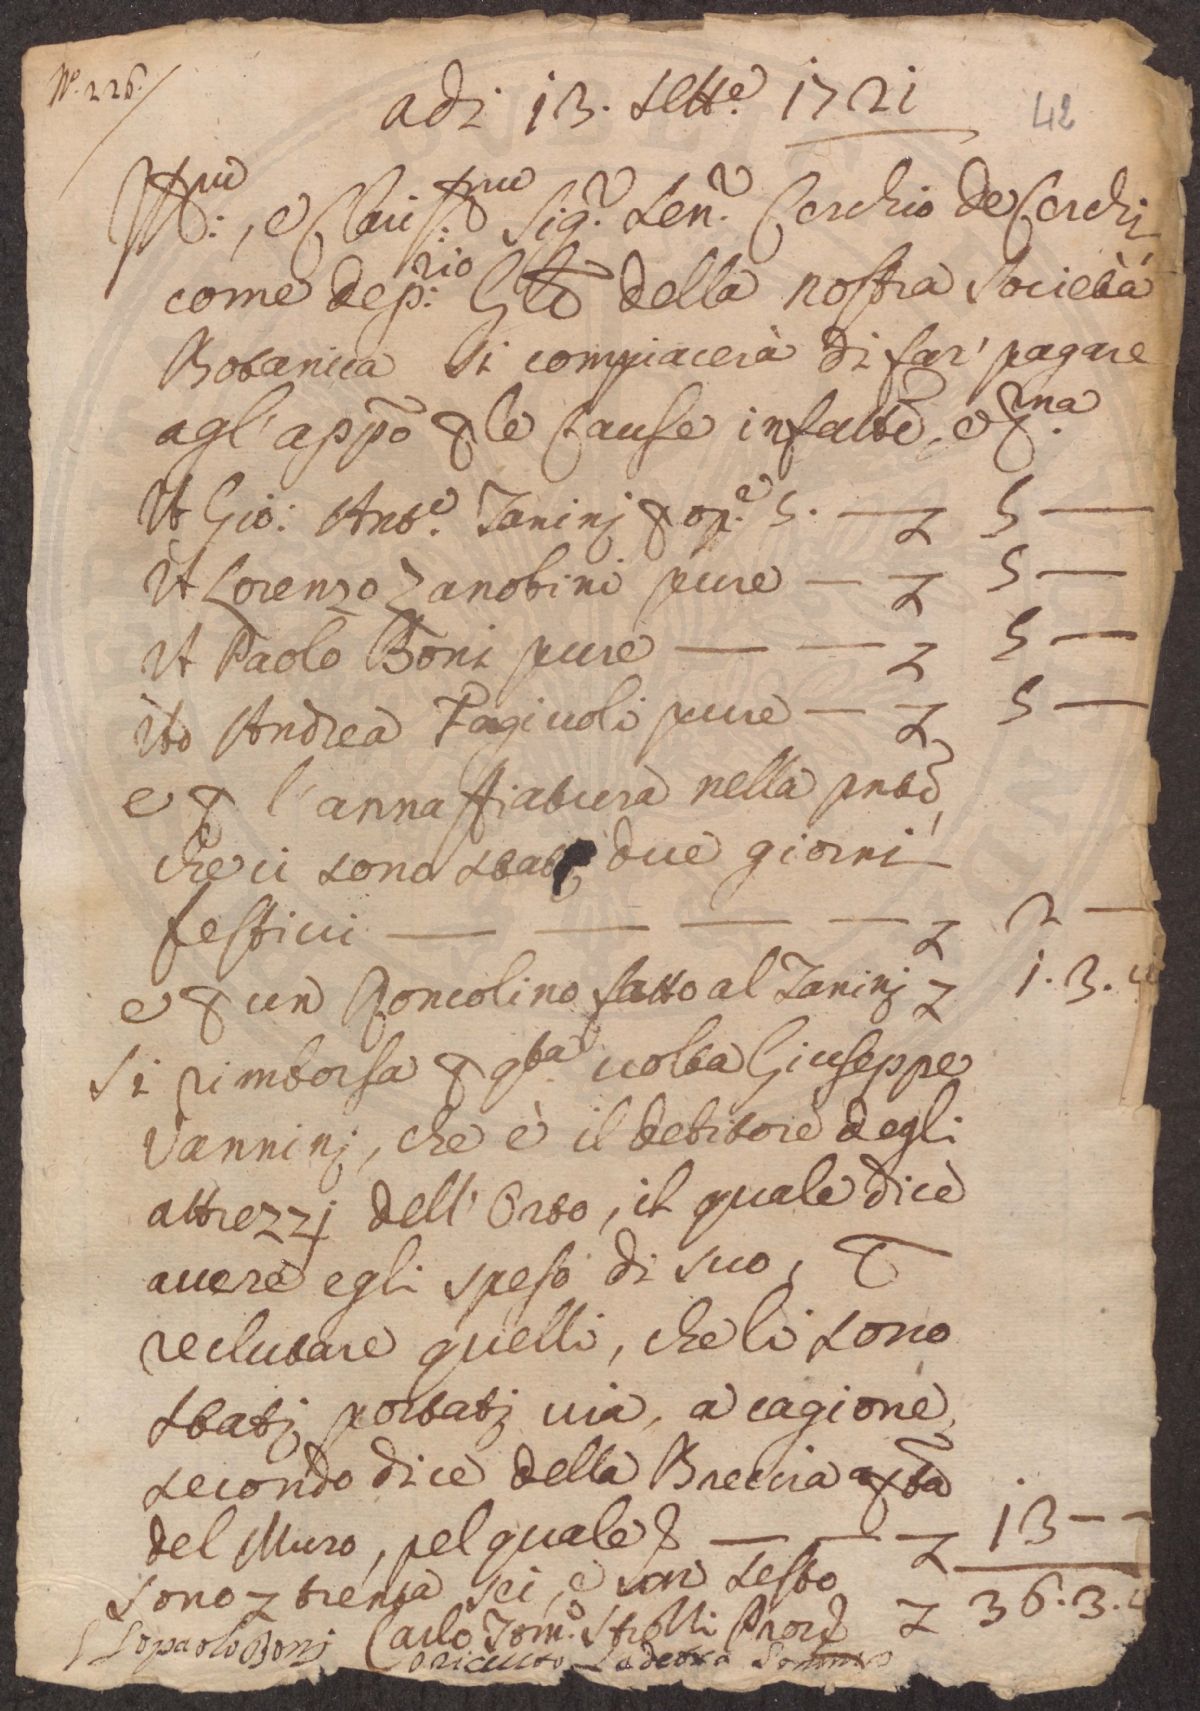 N.o 226.
adì 13. Sett.e 1721
42
Ill.mo, e Claris.mo Sig.r Sen.r Cerchio de Cerchi
come dep.rio Gñle della nostra Società
Botanica si compiacerà di far' pagare
agl' appõ p le Cause infratte, e p.ma
It Gio: Ant.o Zaninj p op.e 5. — z 5 —
It Lorenzo Zanobini pure — z 5 —
It Paolo Boni pure — — z 5 —
Ito Andrea Fagiuoli pure — z 5 —
e p l'annaffiatura nella pnte,
che ci sono statj due giorni
festivi — — — — z 2 —
e p un Roncolino fatto al Zaninj z 1. 3. 4
Si rimborsa p q.ta volta Giuseppe
Vanninj, che è il debitore degli
attrezzj dell' Orto, il quale dice
avere egli speso di suo,
reclutare quelli, che li sono
statj portatj via, a cagione,
secondo dice della Breccia apta
del Muro, pel quale — — z 13 — —
sono z trenta sei, e soldi z 36. 3. 4
Io paolo Boni Carlo Tom.o Strozzi